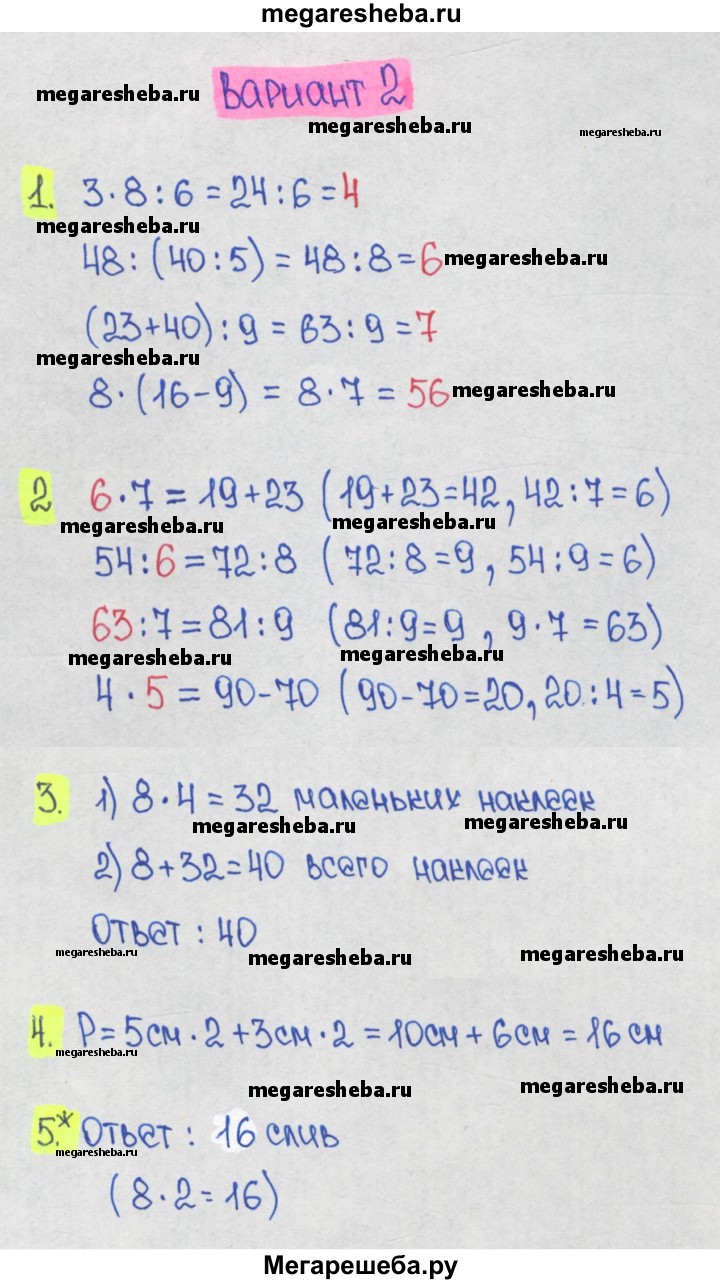 megaresheba.ru
megaresheba.ru
Вариант 2
megaresheba.ru
megaresheba.ru
1. 3·8:6=24:6=4
megaresheba.ru
48:(40:5)=48:8=6
megaresheba.ru
(23+40):9=63:9=7
megaresheba.ru
8·(16-9)=8·7=56
megaresheba.ru
2 6·7=19+23 (19+23=42, 42:7=6)
megaresheba.ru
megaresheba.ru
54:6=72:8 (72:8=9, 54:9=6)
63:7=81:9 (81:9=9, 9·7=63)
megaresheba.ru
megaresheba.ru
4·5=90-70 (90-70=20, 20:4=5)
3. 1) 8·4=32 маленьких наклеек
megaresheba.ru
megaresheba.ru
2) 8+32=40 всего наклеек
Ответ: 40
megaresheba.ru
megaresheba.ru
megaresheba.ru
4. P=5см·2+3см·2=10см+6см=16см
megaresheba.ru
megaresheba.ru
megaresheba.ru
5.* Ответ: 16 слив
megaresheba.ru
(8·2=16)
Мегарешеба.ру